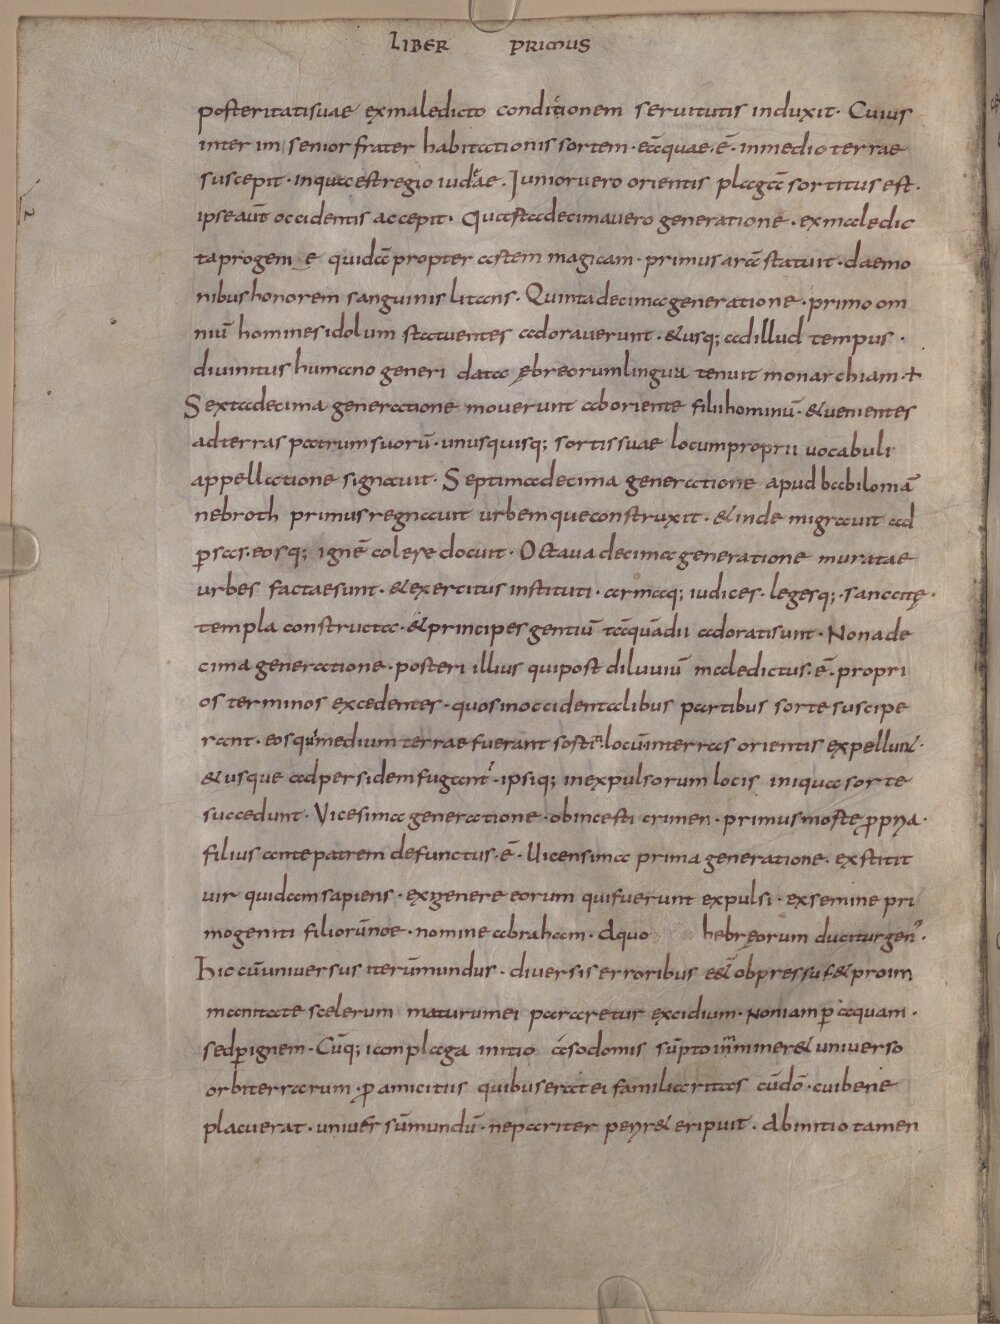 LIBER PRIMUS
posteritatisuae exmaledicto conditionem seruitutis induxit· Cuius
inter im senior frater habitationis sortem· eāquae·ē· inmedio terrae
suscepit· inqua est regio iudęae. Iunioruero orientis plagā sortitus est·
ipse aut̄ occidentis accepit· Quartadecimauero generatione· ex maledic
taprogem e quidā propter artem magicam· primus arā statuit· daemo
nibus honorem sanguinis litans· Quintadecima generatione· primo om
niū homines idolum statuentes adorauerunt· &usq; adillud tempus·
diuinitus humano generi data ębreorumlingua tenuit monarchiam·+
Sextadecima generatione mouerunt aboriente filiihominū· &uenientes
adterras patrumsuorū· unusquisq; sortissuae locumproprii uocabuli
appellatione signauit· Septimadecima generatione apud babiloniā
nebroth primusregnauit urbemqueconstruxit· &inde migrauit ad
p̄sas·eosq; ignē colere docuit· Octauadecima generatione muratae
urbes factaesunt· &exercitus instituti· armaq; iudices· legesq;· sanccitę·
templa constructa· &principes gentiū tāquādii adoratisunt· Nonade
cima generatione· posteri illius quipost diluuiū maledictus·ē· propri
os terminos excedentes· quosinoccidentalibus partibus sorte suscipe
rant· eosqui medium terrae fuerant sortiti locū interras orientis expellunt·
&usque adpersidem fugant· ipsiq; inexpulsorum locis iniqua sorte
succedunt· Vicesima generatione· obincesti crimen· primus morte p̄pria·
filius antepatrem defunctus·ē· Uicensima prima generatione· exstitit
uir quidam sapiens· exgenere eorum quifuerunt expulsi· exsemine pri
mogeniti filiorūnoe· nomine abraham· Aquo hebręorum duciturgen᾿·
Hic cū uniuersus iterūmundus· diuersis erroribus eēt obpressus &proim
manitate scelerum maturumei pararetur excidium· Noniam p̄ aquam·
sedp̄ignem· Cūq; iam plaga initio asodomis sūpto imminer& uniuerso
orbiterrarum· p̄ amicitiis quibuserat ei familiaritas cūdō· cuibene
placuerat· uniuersūmundū· nepariter perir& eripuit· Abinitio tamen